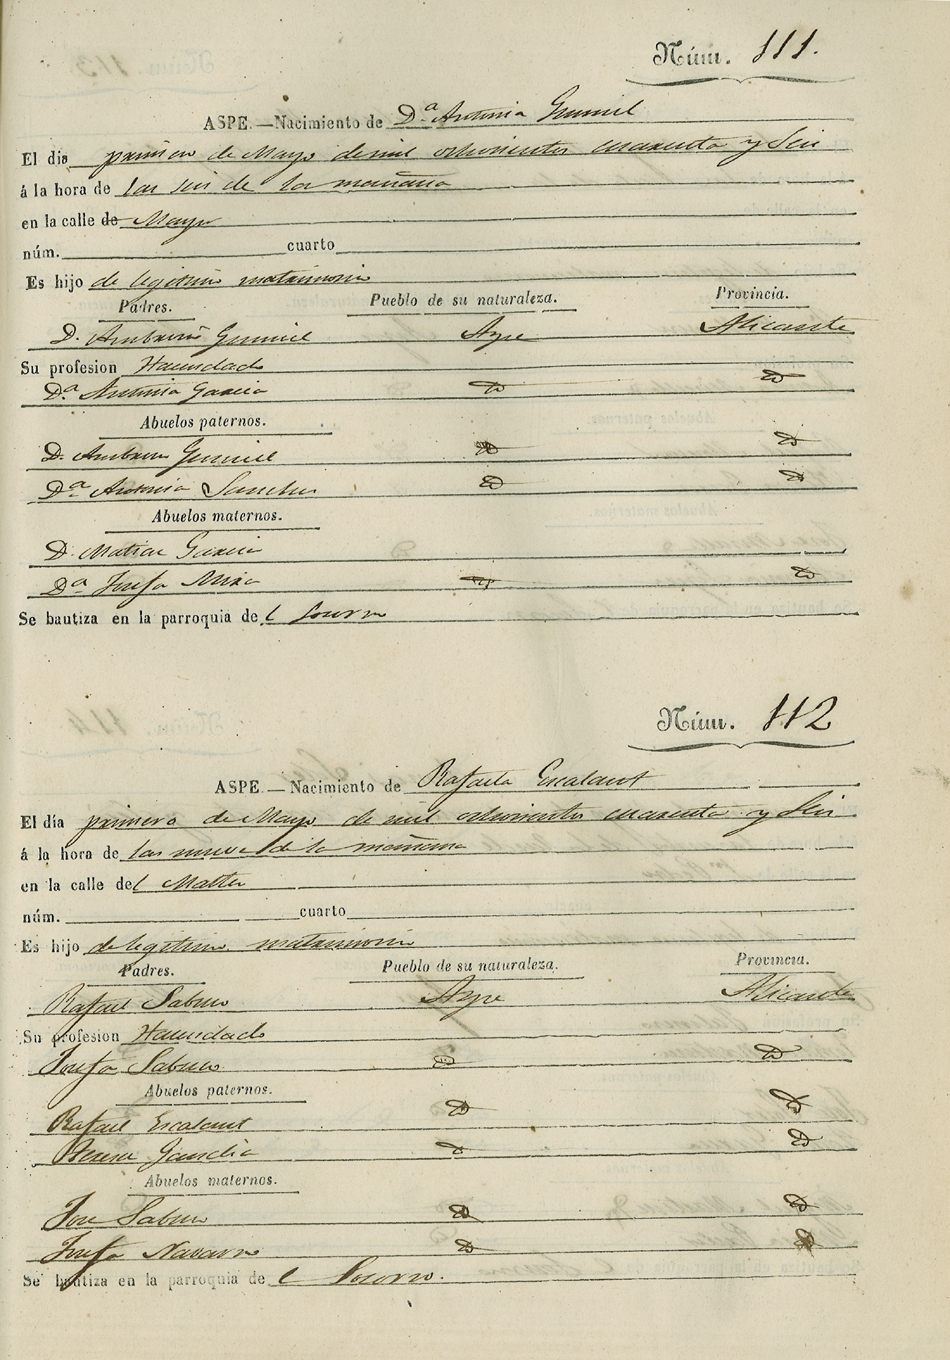 Núm. 111.
ASPE.—Nacimiento de D.ª Antonia Gumiel
El dia primero de Mayo de mil ochocientos cuarenta y Seis
á la hora de las seis de la mañana
en la calle de Mayor
núm. cuarto
Es hijo de legitimo matrimonio
Padres. Pueblo de su naturaleza. Provincia.
D. Ambrosio Gumiel Aspe Alicante
Su profesion Hacendado
D.ª Antonia Garcia
Abuelos paternos.
D. Ambrosio Gumiel
D.ª Antonia Sanchez
Abuelos maternos.
D. Matias Garcia
D.ª Josefa Mira
Se bautiza en la parroquia del Socorro
Núm. 112
ASPE.—Nacimiento de Rafaela Escalant
El día primero de Mayo de mil ochocientos cuarenta y Seis
á la hora de las nueve de la mañana
en la calle del
núm. cuarto
Es hijo de legitimo matrimonio
Padres. Pueblo de su naturaleza. Provincia.
Rafael Sabuco Aspe Alicante
Su profesion Hacendado
Josefa Sabuco
Abuelos paternos.
Rafael Escalant
Teresa
Abuelos maternos.
Jose Sabuco
Josefa Navarro
Se bautiza en la parroquia de l Socorro.